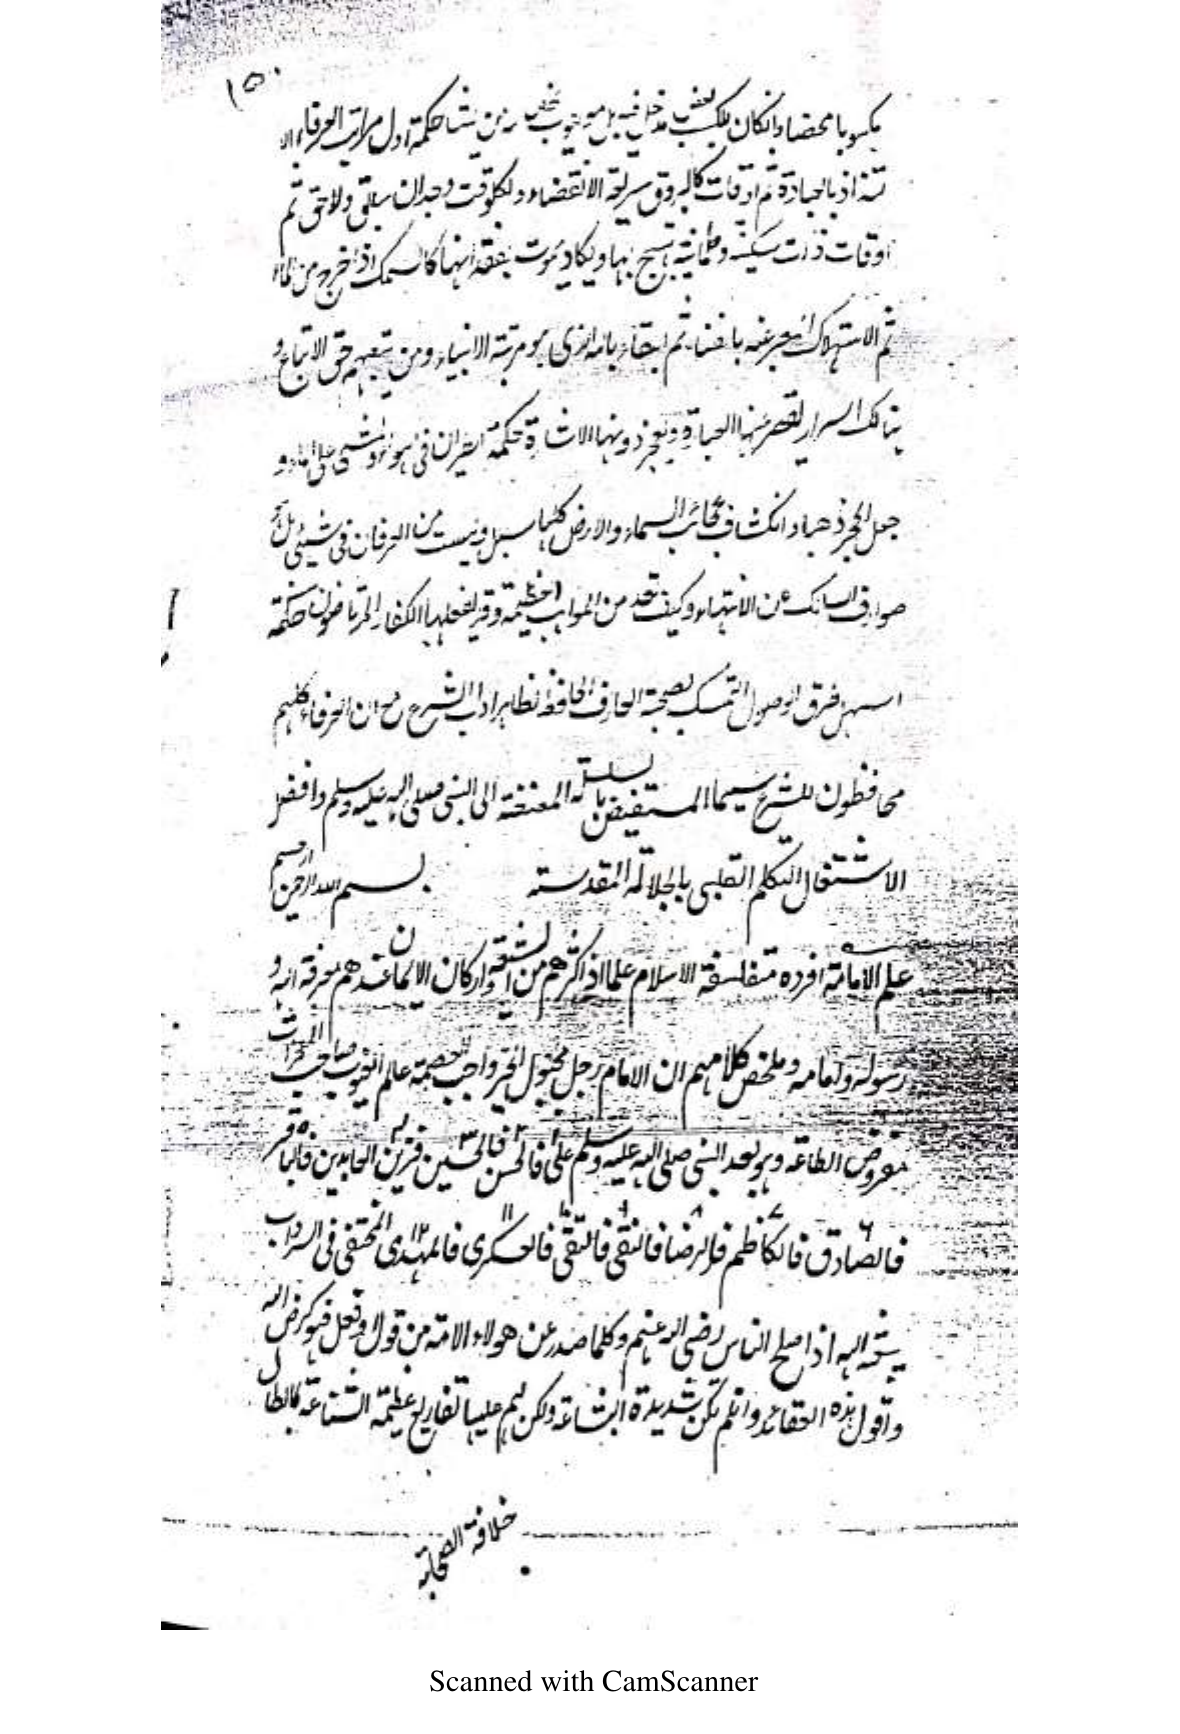 ١٥٠
مكسوبا محضا وان كان للكسب مدخل فيه بل موهوب من يشا حكمة اول مراتب العرفاء الا
لتذاذ بالعبادة ثم اوقات كالبروق سريعة الانقضاء ولكل وقت وجدان سابق ولاحق ثم
اوقات ذات سكينة وطمانية يبتهج بها ويكاد يموت بفقدانها كالسمك اذا خرج من الماء
ثم الاستهلاك المعبر عنه بالفناء ثم البقاء بالله الذى هو مرتبة الانبياء ومن تبعهم حق الاتباع و
هنالك اسرار تقصر عنها العبارة وتعجز دونها الاشارة حكمة الطيران فى الهواء والمشى على الماء و
جعل الحجر ذهبا وانكشاف عجائب السماء والارض كلها سهل وليست من العرفان فى شيئ بل
صوارف السالك عن الانتهاء وكيف تعد من المواهب العظيمة وقد يفعلها الكفار المرتاضون حكمة
اسهل طرق الوصول التمسك بصحبة العارف الحافظ لظاهر اداب الشرع مع ان العرفاء كلهم
محافظون للشرع سيما المستفيض بالسلسلة المعنعنة الى النبى صلى الله عليه وسلم وافضل
الاشتغال التكلم القلبى بالجلالة المقدسة بسم الله الرحمن الرحيم
علم الامامة افرده متفلسفة الاسلام علما اذ اكثرهم من الشيعة واركان الايمان عندهم معرفة الله و
رسوله وامامه وملخص كلامهم ان الامام رجل مجهول الخبر واجب العصمة عالم الغيوب صاحب المعجزات
مفروض الطاعة وهو بعد النبى صلى الله عليه وسلم على فالحسن فالحسين فزين العابدين فالباقر
فالصادق فالكاظم فالرضا فالتقى فالنقى فالعسكرى فالمهدى المختفى فى السرداب
يبعثه الله اذا صلح الناس رضى الله عنهم وكلما صدر عن هولاء الائمة من قول او فعل فهو كرض الله
واقول هذه العقائد وان لم تكن شديدة الشناعة ولكن لهم عليها تفاريع عظيمة الشناعة كابطال
خلافة الصحابة
Scanned with CamScanner